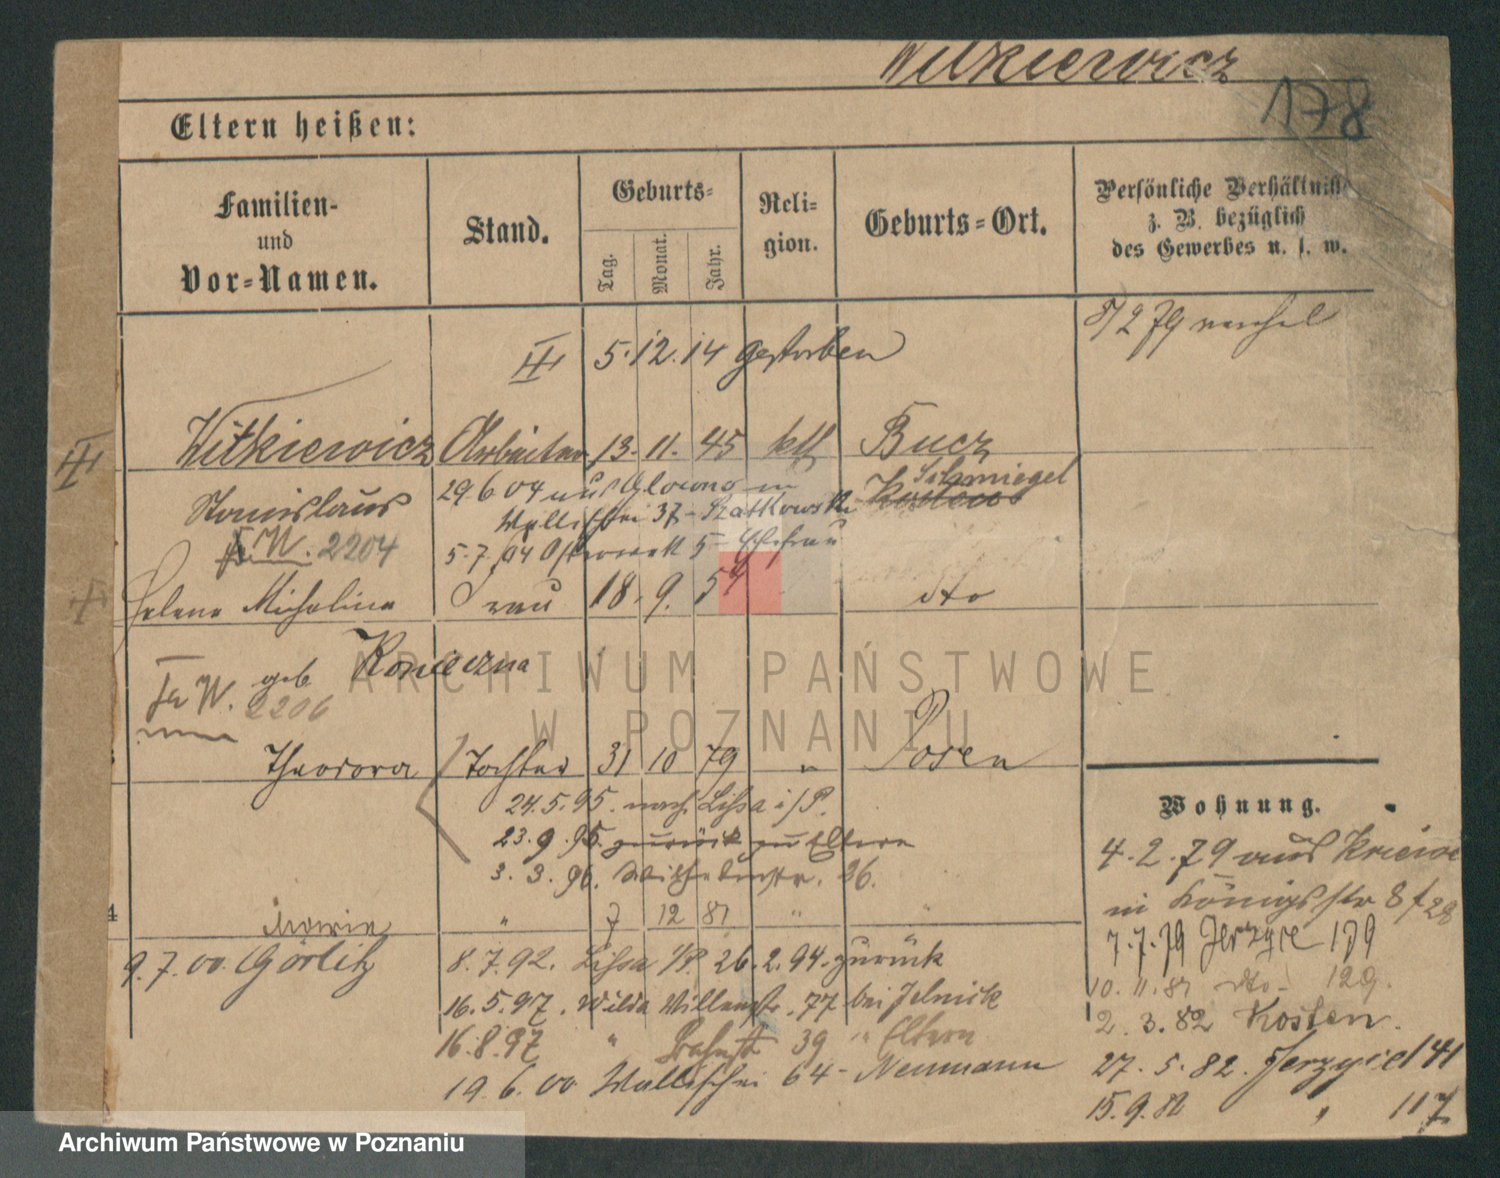 Witkiewicz
178
Eltern heißen:
Familien-
und
Vor-Namen.
Stand.
Geburts-
Tag.
Monat.
Jahr.
Reli-
gion.
Geburts-Ort.
Persönliche Verhältnisse
z. B. bezüglich
des Gewerbes u. s. w.
8/2 79
III 5. 12. 14 gestorben
Witkiewicz Arbeiter 13. 11. 45 kth Bucz
III
Stanislaus
Schmiegel
Kosten
29.6 04 aus Glowno in
Wallischei 37- Ratkowski
W. 2204
5.7.04 5- Ehefrau
Helene Michalina Frau 18. 9. 54 dto
geb Konieczna
Fr W. 2206
Theodora Tochter 31 10 79 " Posen
24.5.95. nach Lissa i/P.
23.9.95. zurück zu Eltern
3. 3. 96. 36.
4 Maria " 7 12 81 " "
9.7.00. Görlitz
8.7.92. Lissa i/P. 26.2.94. zurück
16.5.97. Wilda 77 bei Jelnick
16.8.97 " 39 " Eltern
19.6.00 Wallischei 64- Neumann
Wohnung.
4.2.79 aus Kriewe
in Königsstr 8 f 28
7.7.79 Jerzyce 179
10.11.81 dto- 129.
2.3.82 Kosten.
27.5.82. Jerzyce 41
15.9.82 " 117.
ARCHIWUM PAŃSTWOWE
W POZNANIU
Archiwum Państwowe w Poznaniu